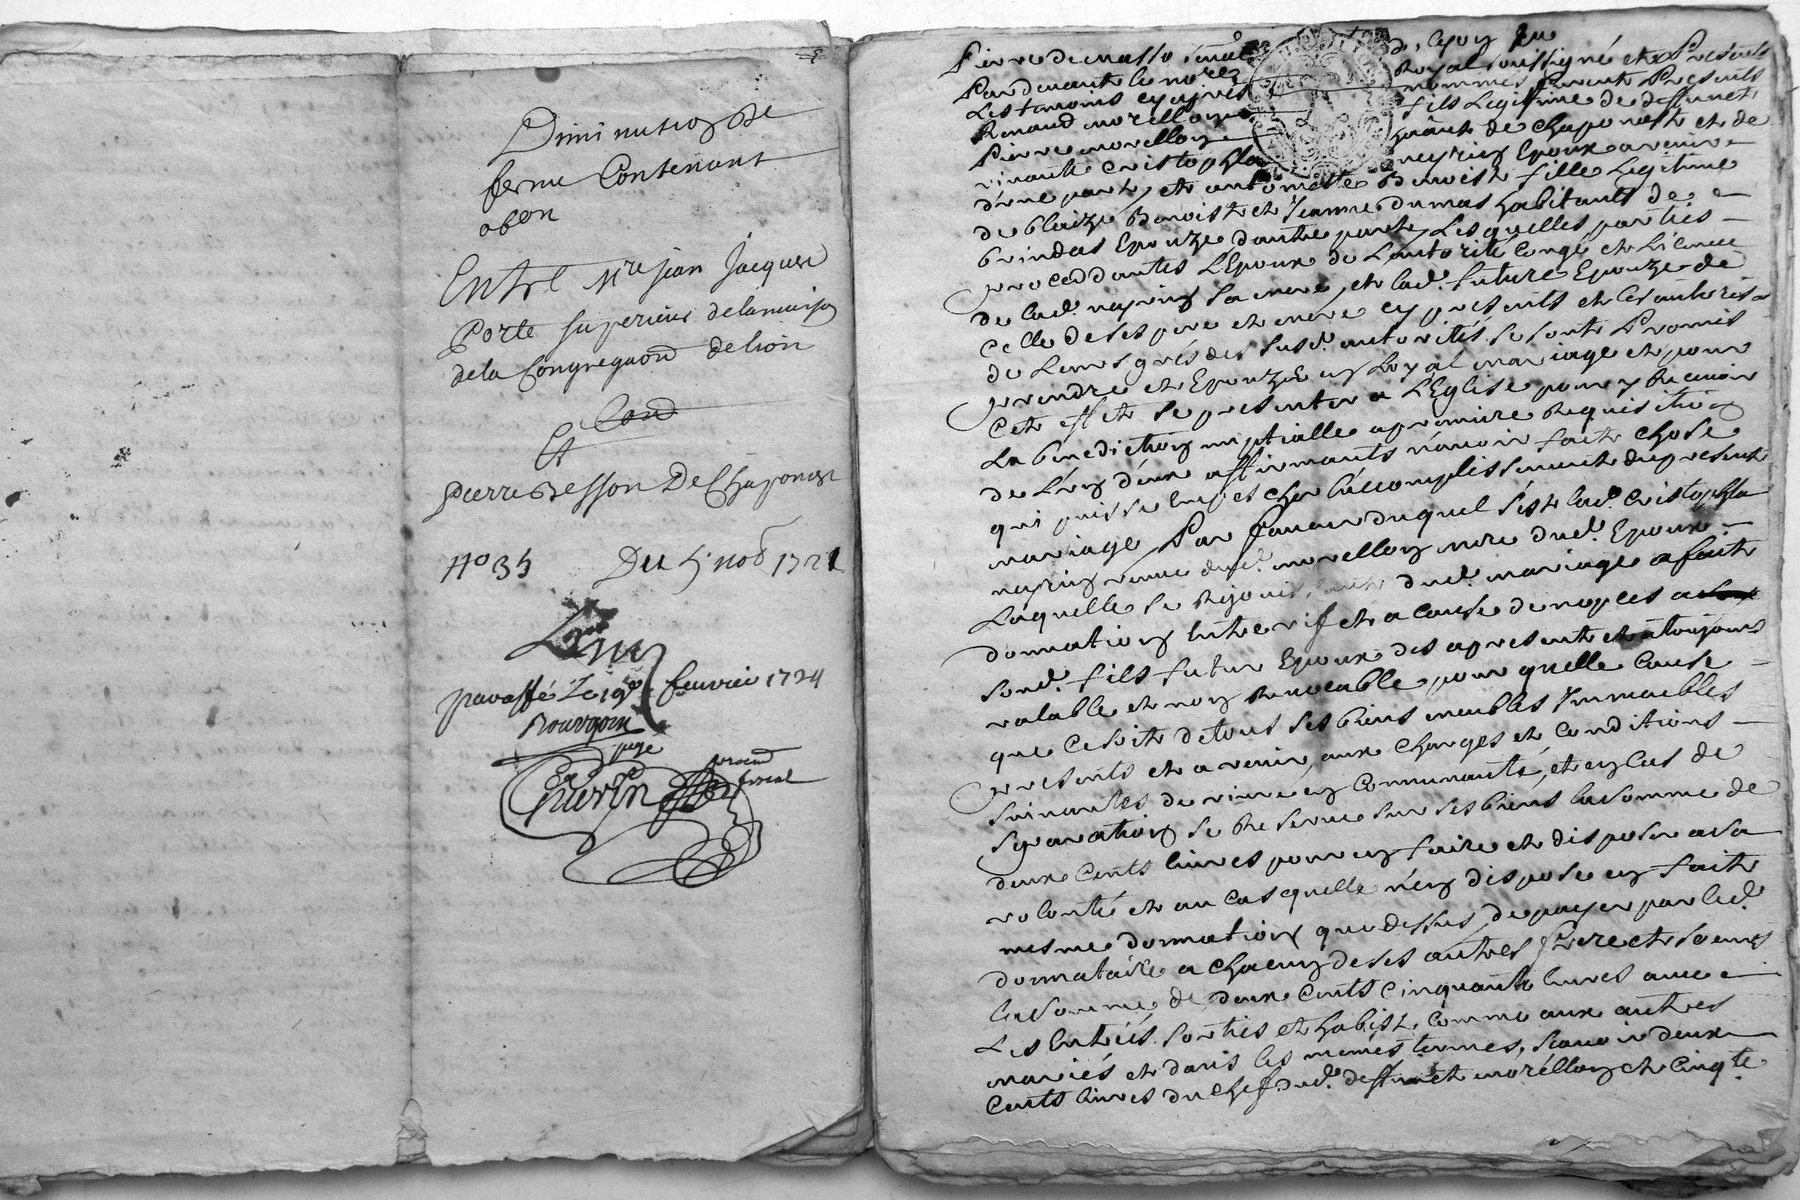 Diminution de
ferme Contenant
abon
Entre Mre Jean Jacques
Porte superieur de la maison
de la Congregaon de lion
Cond
Et
Pierre Besson De Chaponost
No 35 Du 5 nob 1721
paraffé Le 19e feuvrier 1724
Bourgoin
juge
Guerin
procu
fiscal
Pierre Demasso de Lyon
Pardevant le nore Royal soussigné et Presents
Les temoins cy apres nommés furent Presents
Renaud morellon fils Legitime de deffunct
Pierre morellon de chaponost et de
vivante Cristophla neyrin Epoux avenir
d'une part, et antoinette Benoist fille Legitime
de blaize Benoist et Jeanne Dumas habitants de
brindas Epouze dautre part, Lesquelles parties
procedantes L'Epoux de Lautorité Congé et Licence
de lad. neyrin sa mere, et lad. future Epouze de
Celle de ses pere et mere cy presents et les autoris
de Leurs grés des susd. autorités se sont Promis
prendre et Epouzer en Loyal mariage et pour
Cet effet se presenter a L'Eglise pour y Recevoir
La benediction nuptialle a premiere Requisition
de L'un d'eux affirmants n'avoir fait chose
qui puisse Empecher lacomplissement du present
mariage Par faveur duquel s'est lad. cristophla
neyrin veuve dud. morellon mere dud. Epoux
Laquelle se Rejouissant dud. mariage a fait
donnation Entre vif et a Cause de nopces a
Sond. fils futur Epoux des apresent et a toujours
valable et non Revocable pour quelle Cause
que Ce soit de tous ses biens meubles Immeubles
presents et avenir, aux charges et Conditions
Suivantes de vivre en Communauté, et en Cas de
Separation se Reserve sur ses biens la somme de
deux Cents livres pour en faire et disposer a sa
volonté et au Cas quelle n'en dispose en fait
mesme donnation que dessus, de payer par led.
donnataire a chacun de ses autres frere et soeurs
la somme de deux Cents Cinquante livres avec
Les Entrées sorties et habist, Comme aux autres
mariés et dans les memes termes, scavoir deux
Cents livres du chef dud. deffunct morellon et Cinqte